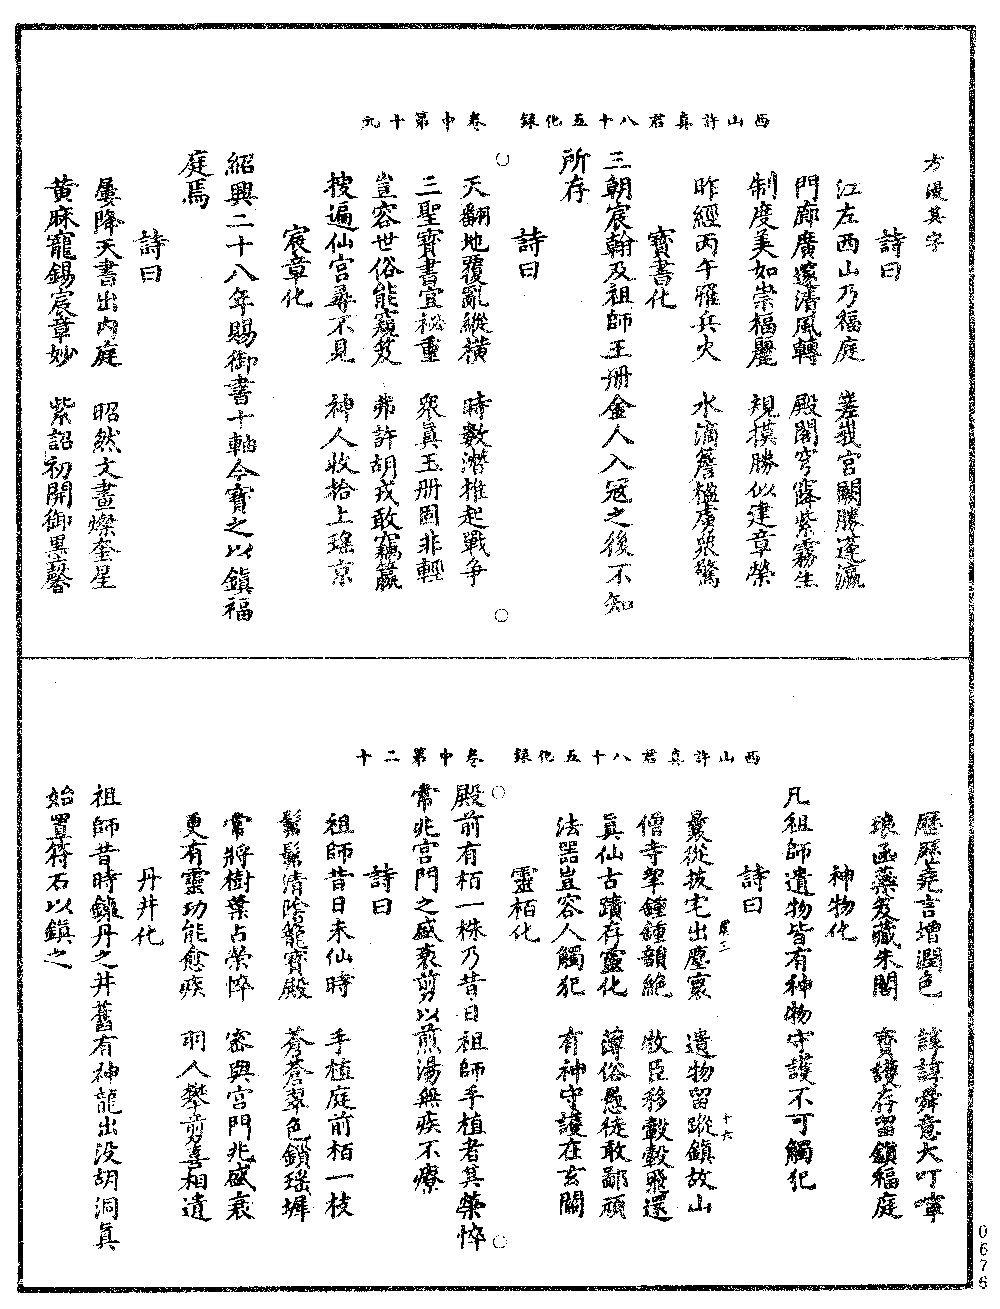 西山許真君八十五化錄　卷中第十九
方漫其字
詩曰
江左西山乃福庭　嵳峩宮闕勝蓬瀛
門廊廣邃清風轉　殿閣穹窿紫霧生
制度美如崇福麗　規模勝似建章榮
昨經丙午罹兵火　水滴簷楹虜眾驚
寶書化
三朝宸翰及祖師玉册金人入冦之後不知
所存
詩曰
天翻地覆亂縱橫　時數潛推起戰爭
三聖寶書宜祕重　眾真玉册固非輕
豈容世俗能窺笈　弗許胡戎敢竊籝
搜遍仙宮尋不見　神人收拾上瑤京
宸章化
紹興二十八年賜御書十軸今寶之以鎮福
庭焉
詩曰
屢降天書出內庭　昭然文畫燦奎星
黃麻寵錫宸章妙　紫詔初開御墨馨
西山許真君八十五化錄　卷中第二十
歷歷堯言增潤色　諄諄舜意大叮嚀
琅函蘂笈藏朱閣　寶護存留鎮福庭
神物化
凡祖師遺物皆有神物守護不可觸犯
詩曰
曩從拔宅出塵寰　遺物留蹤鎮故山
十六
僧寺犂鍾鍾韻絕　牧臣移轂轂飛還
真仙古蹟存靈化　薄俗愚徒敢鄙頑
法器豈容人觸犯　有神守護在玄關
靈栢化
殿前有栢一株乃昔日祖師手植者其榮悴
常兆宮門之盛衰剪以煎湯無疾不療
詩曰
祖師昔日未仙時　手植庭前栢一枝
鬖鬖清陰籠寶殿　蒼蒼翠色鎖瑤墀
常將樹葉占榮悴　密與宮門兆盛衰
更有靈功能愈疾　羽人攀剪喜相遺
丹井化
祖師昔時鍊丹之井舊有神龍出沒胡洞真
始置符石以鎮之
0676